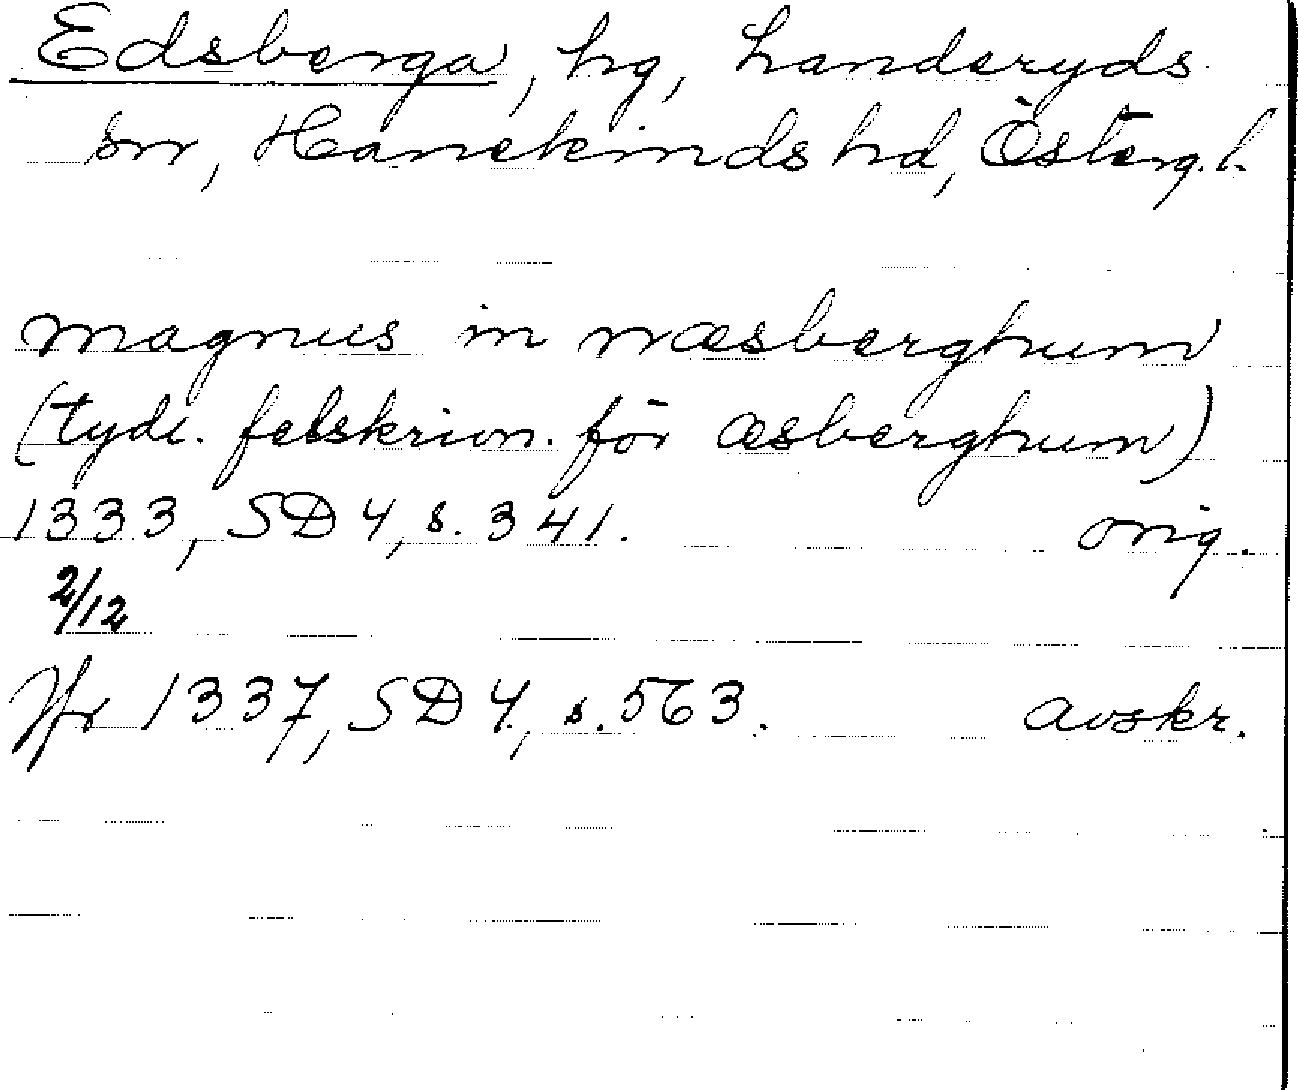 Edsberga, hg, Landeryds
sn, Hanekinds hd, Österg. l.
magnus in næsberghum
(tydl. felskrivn. för æsberghum)
1333, SD 4, s. 341. orig.
2/12
Jfr 1337, SD 4, s. 563. avskr.